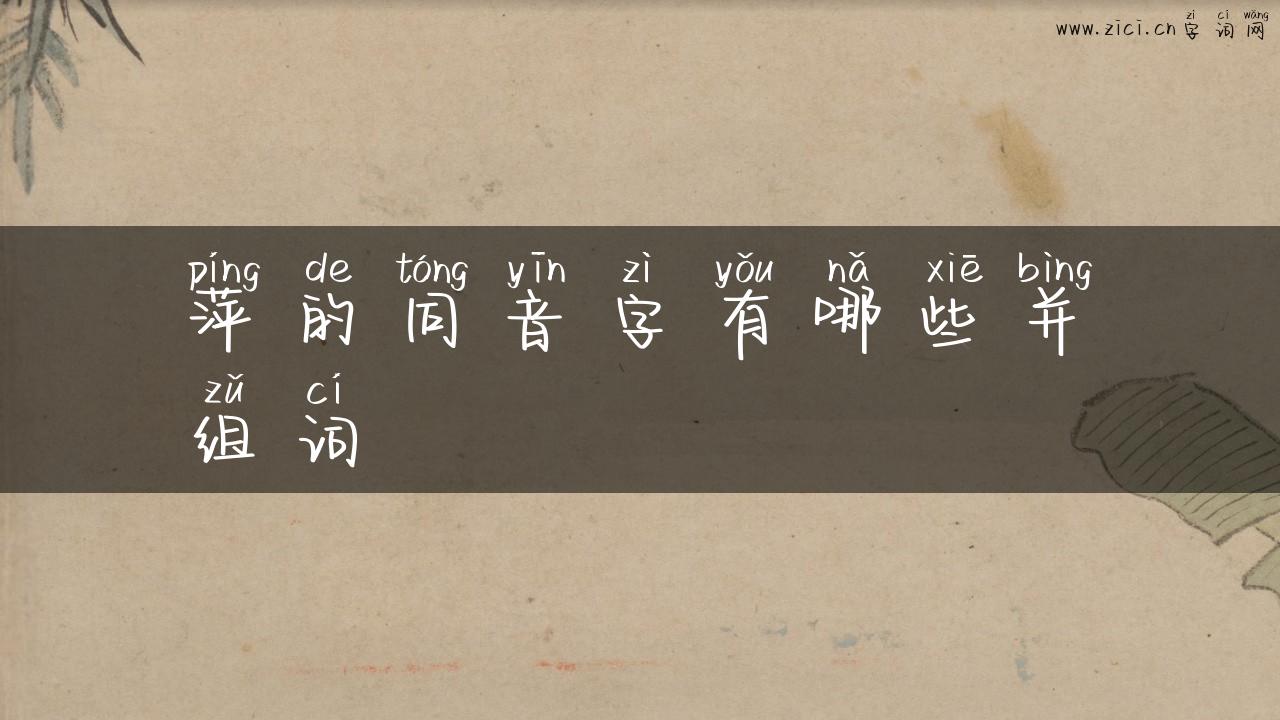 zì cí wǎng
www.zici.cn 字词网
píng de tóng yīn zì yǒu nǎ xiē bìng
萍的同音字有哪些并
zǔ cí
组词